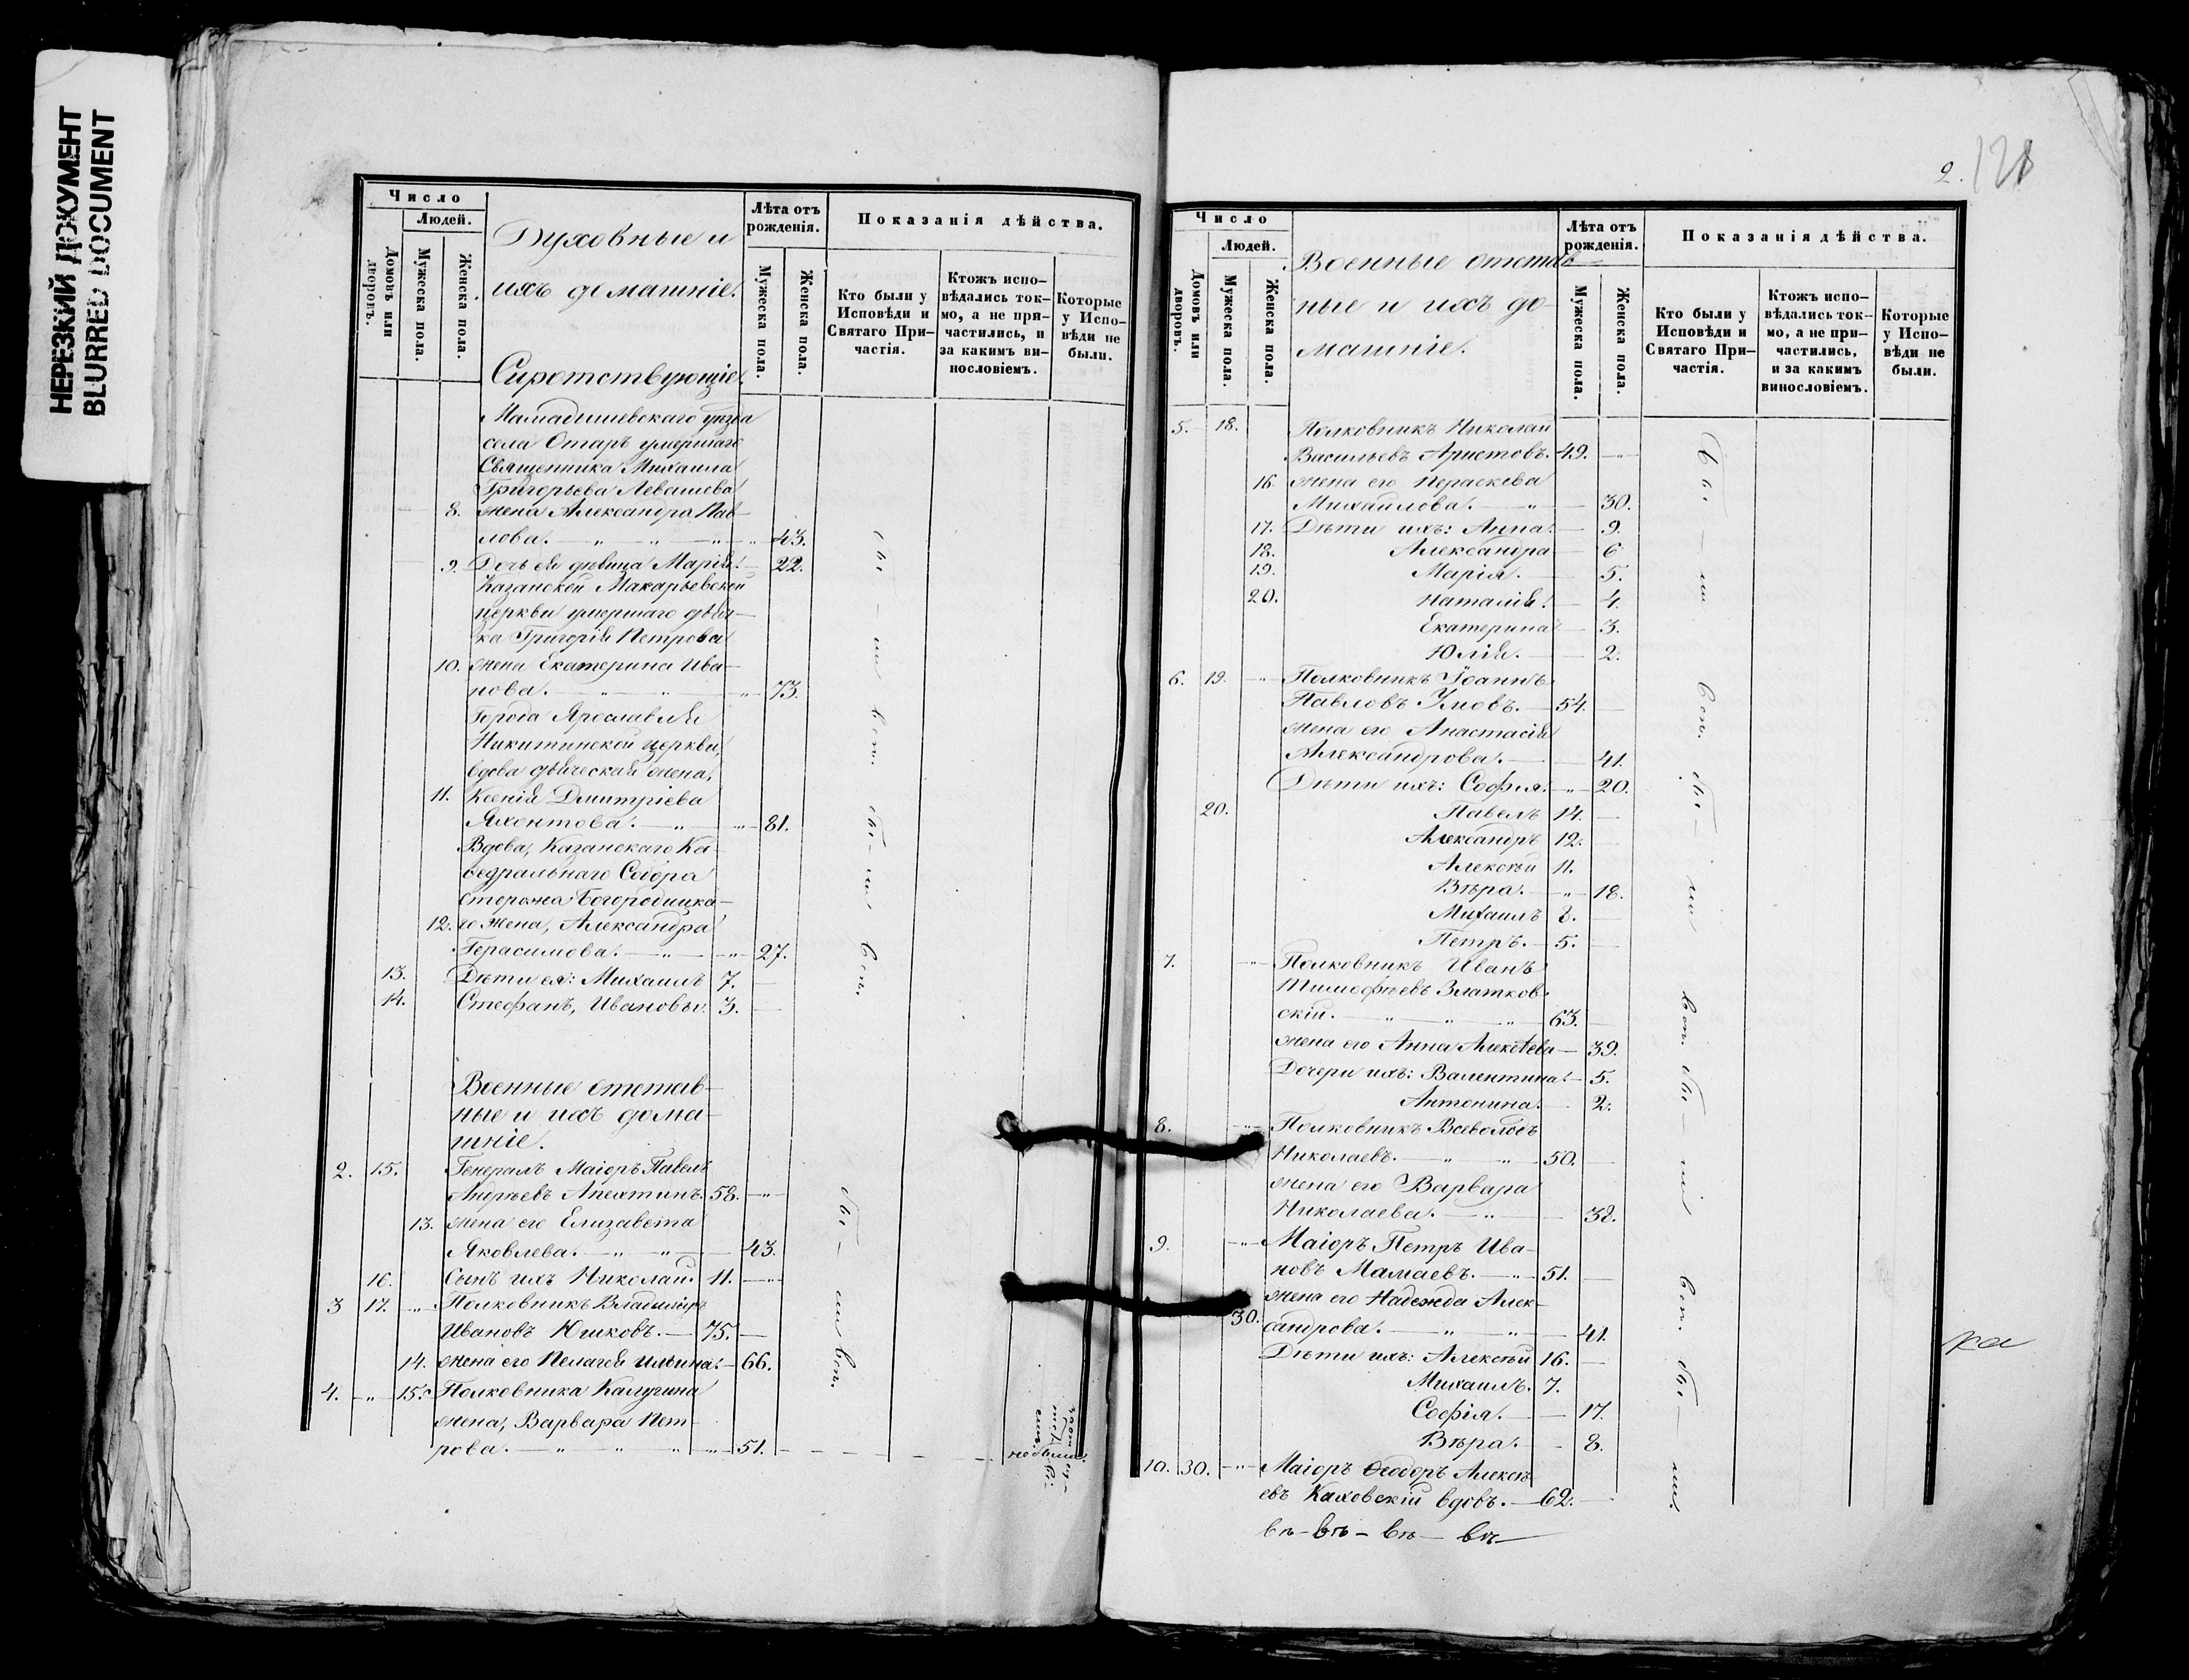 НЕРЕЗКИЙ ДОКУМЕНТ
BLURRED DOCUMENT
Число
Людей.
Домовъ или дворовъ.
Мужеска пола.
Женска пола.
Духовные и
ихъ домашніе.
Сиротствующіе.
Лѣта отъ
рожденія.
Мужеска пола.
Женска пола.
Показанія дѣйства.
Кто были у
Исповѣди и
Святаго При-
частія.
Ктожъ испо-
вѣдались ток-
мо, а не при-
частились, и
за какимъ ви-
нословіемъ.
Которые
у Испо-
вѣди не
были.
Мамадышевскаго уѣзда
села Отаръ умершаго
Священника Михаила
Григорьева Левашева
8. жена Александра Пав-
лова. — „ — „ — „ 43.
9. Дочь ея девица Марія. 22.
Казанской Макарьевской
церкви умершаго дьяч-
ка Григорія Петрова
10. жена Екатерина Ива-
нова. — „ — „ — „ 73.
Города Ярославля
Никитинской церкви,
вдова дьяческая жена,
11. Ксенія Дмитріева
Яхонтова. — „ — „ 81.
Вдова, Казанскаго Ка-
ѳедральнаго Собора
сторожа Богородицка-
12. го жена, Александра
Герасимова. — „ — „ 27.
13. Дѣти ея: Михаилъ 7.
14. Стефанъ, Ивановы. 3.
Военные отстав-
ные и ихъ дома-
шніе.
2. 15. Генералъ Маіоръ Павелъ
Андрѣевъ Апехтинъ. 58. — „
13. жена его Елизавета
Яковлева. — „ — „ — 43.
16. Сынъ ихъ Николай. 11. — „
3 17. „ Полковникъ Владиміръ
Ивановъ Юшковъ. — 75. —
14. жена его Пелагея Ильина. — 66.
4. — „ — 15. Полковника Калугина
жена, Варвара Пет-
рова. — „ — „ — „ — „ 51. — не была.
бы — ли вст. бы — ли вст.
бы — ли вст.
2. 128
Число
Людей.
Домовъ или дворовъ.
Мужеска пола.
Женска пола.
Военные отстав-
ные и ихъ до-
машніе.
Лѣта отъ
рожденія.
Мужеска пола.
Женска пола.
Показанія дѣйства.
Кто были у
Исповѣди и
Святаго При-
частія.
Ктожъ испо-
вѣдались ток-
мо, а не при-
частились,
и за какимъ
винословіемъ.
Которые
у Испо-
вѣди не
были.
5. 18. Полковникъ Николай
Васильевъ Аристовъ. 49. — „
16. жена его Пераскева
Михайлова. — „ — 30.
17. Дѣти ихъ: Анна. — 9.
18. Александра — 6
19. Марія. — 5.
20. Наталія. — 4.
Екатерина — 3.
Юлія. — 2.
6. 19. — „ Полковникъ Іоаннъ
Павловъ Умовъ. — 54. —
жена его Анастасія
Александрова. — 41.
Дѣти ихъ: Софія. — „ — 20.
20. Павелъ 14. —
Александръ 12. —
Алексѣй 11.
Вѣра. — „ — 18.
Михаилъ 8. —
Петръ. — 5. —
7. — „ Полковникъ Иванъ
Тимофѣевъ Златков-
скій. — „ — „ — „ 63. —
жена его Анна Алексѣева — 39.
Дочери ихъ: Валентина. — 5.
Антонина. — 2.
8. — „ Полковникъ Всеволодъ
Николаевъ. — „ — „ 50. —
жена его Варвара
Николаева. — „ — 38.
9. — „ — Маіоръ Петръ Ива-
новъ Мамаевъ. — „ 51. —
жена его Надежда Алек-
30. сандрова. — „ — „ — 41.
Дѣти ихъ: Алексѣй 16. —
Михаилъ. 7.
Софія. — 17.
Вѣра. — 8.
10. 30. — „ Маіоръ Ѳеодоръ Алексѣ-
евъ Каховскій вдовъ. — 62. —
бы — ли вст. бы — ли вст. бы — ли вст. бы — ли.
ра